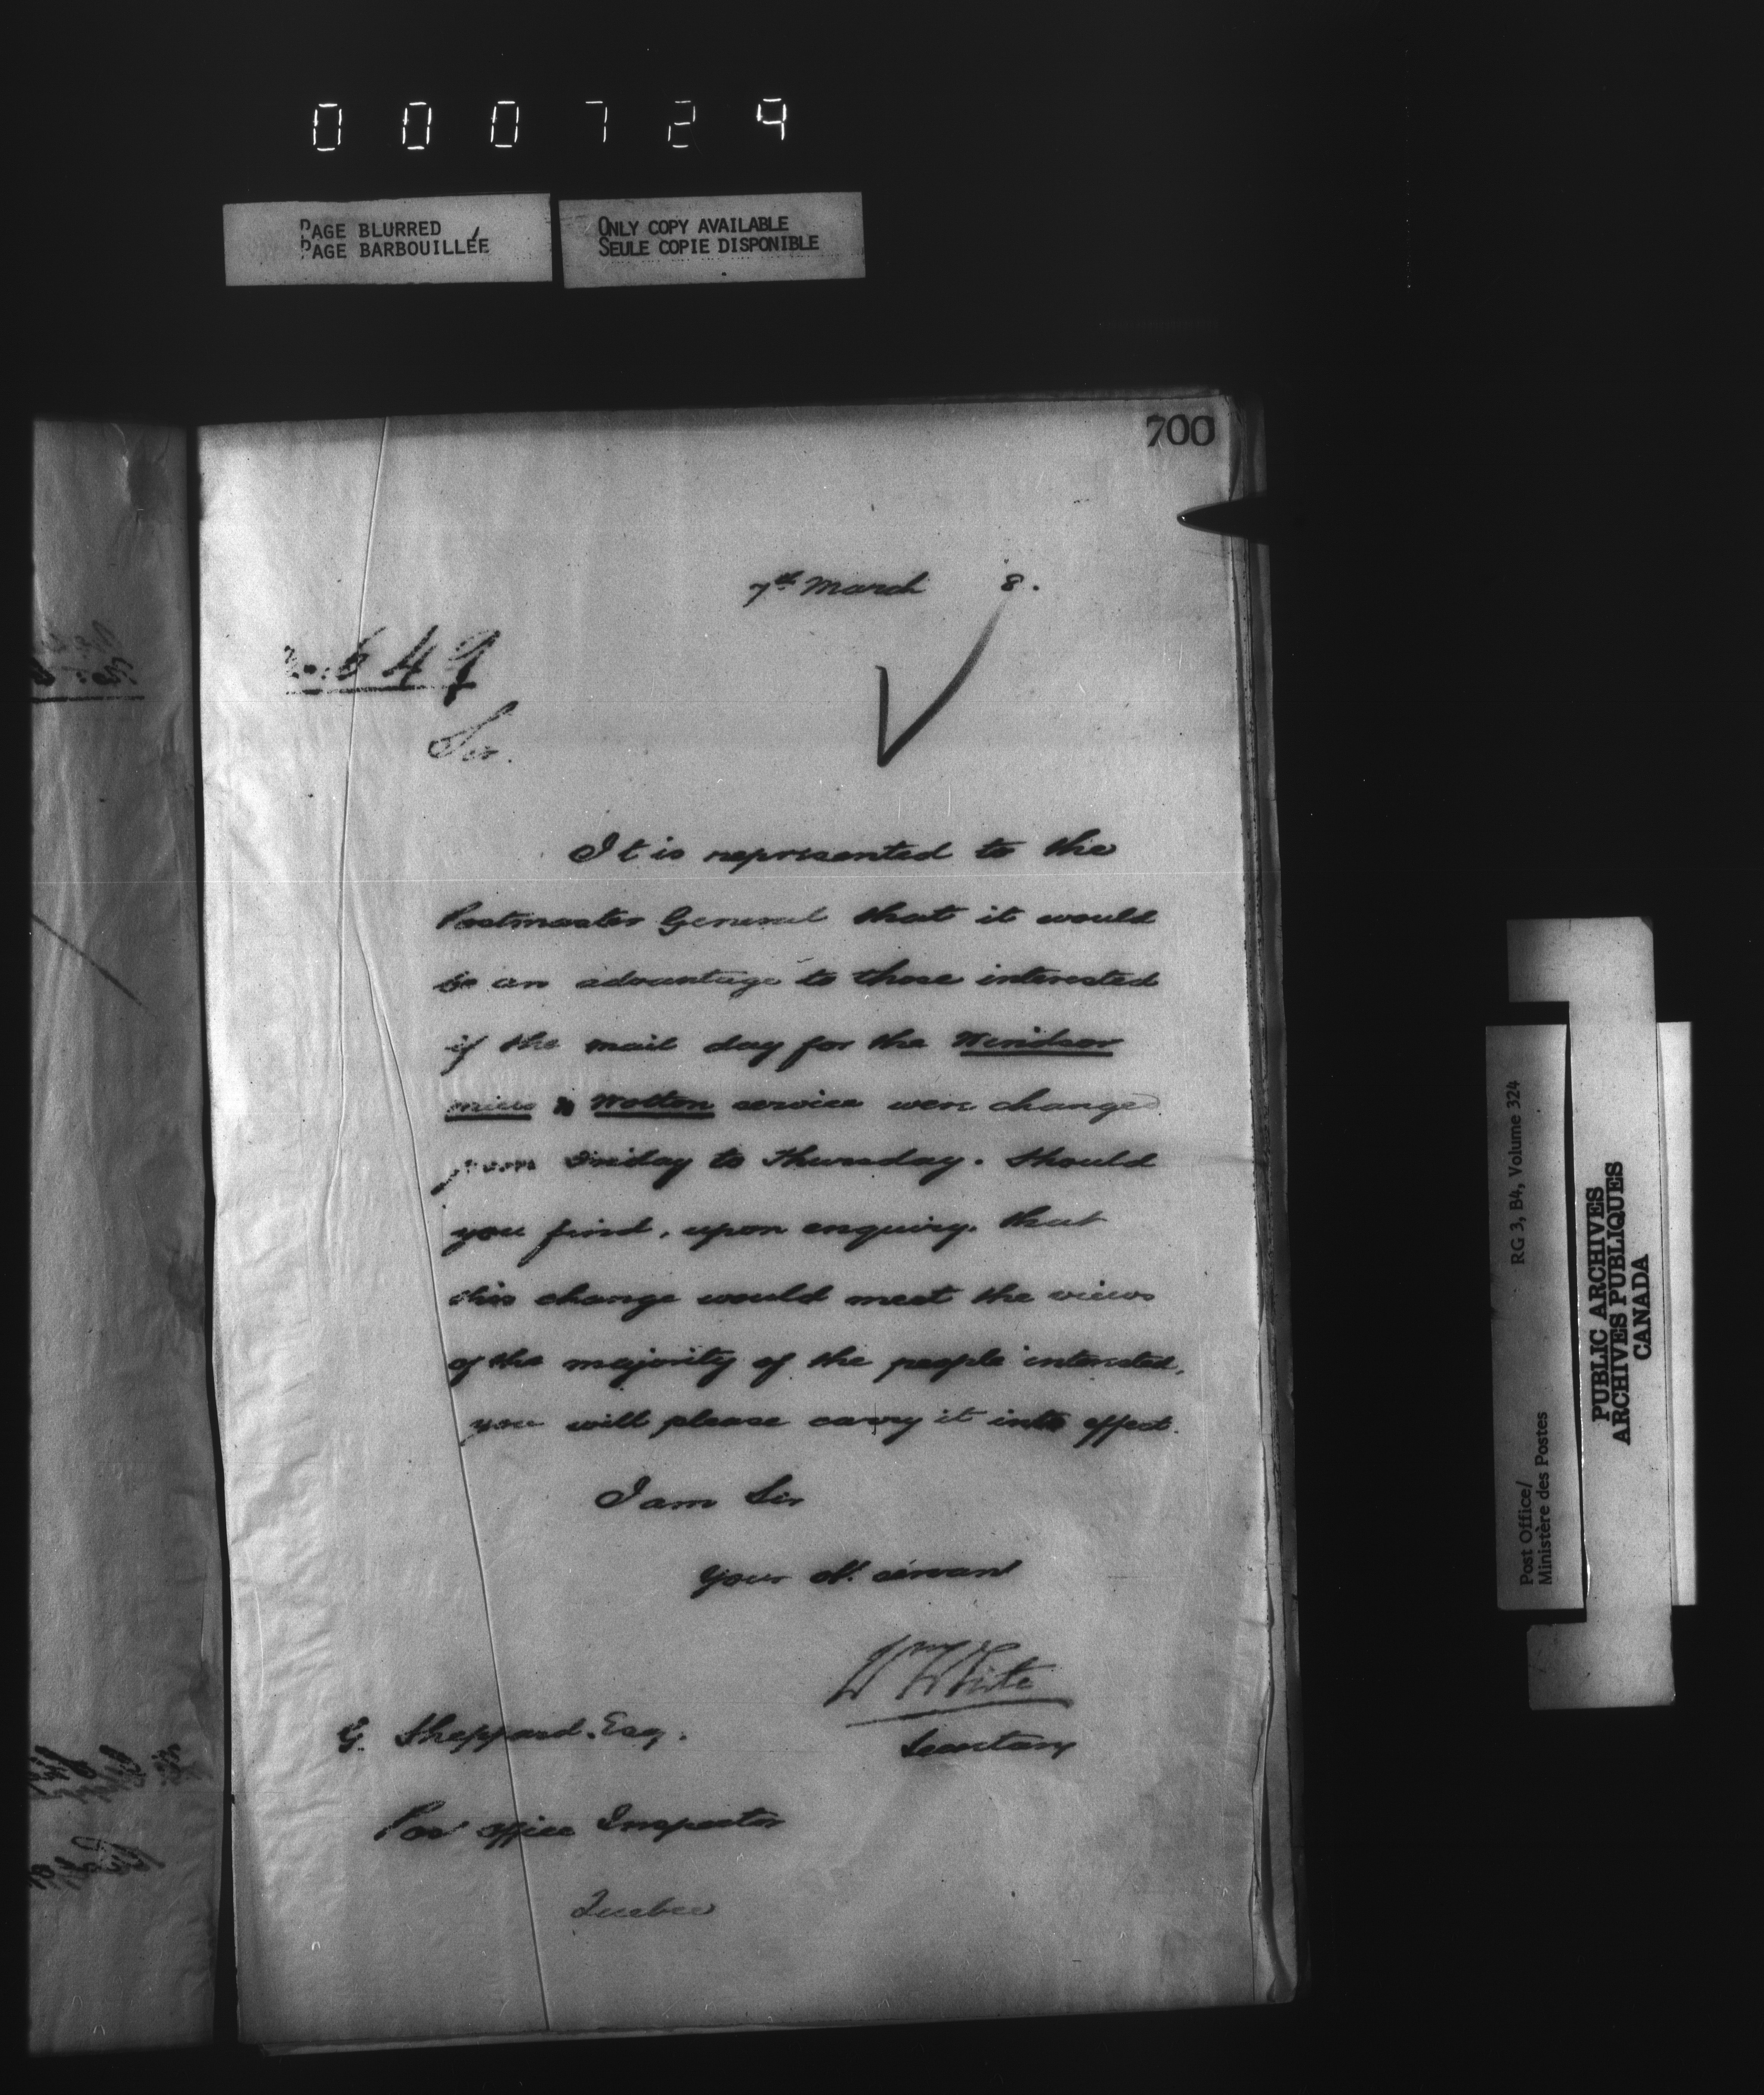 000724
PAGE BLURRED
PAGE BARBOUILLÉE
ONLY COPY AVAILABLE
SEULE COPIE DISPONIBLE
700
7th March 8.
No. 649
Sir.
It is represented to the
Postmaster General that it would
be an advantage to those interested
if the mail day for the Windsor
Mills & Wotton service were changed
from Friday to Thursday. Should
you find, upon enquiry, that
this change would meet the views
of the majority of the people interested,
you will please carry it into effect.
I am Sir
Your ob. servant
W White
Secretary
G. Sheppard. Esq.
Post Office Inspector
Quebec
Post Office/
Ministère des Postes
RG 3, B4, Volume 324
PUBLIC ARCHIVES
ARCHIVES PUBLIQUES
CANADA